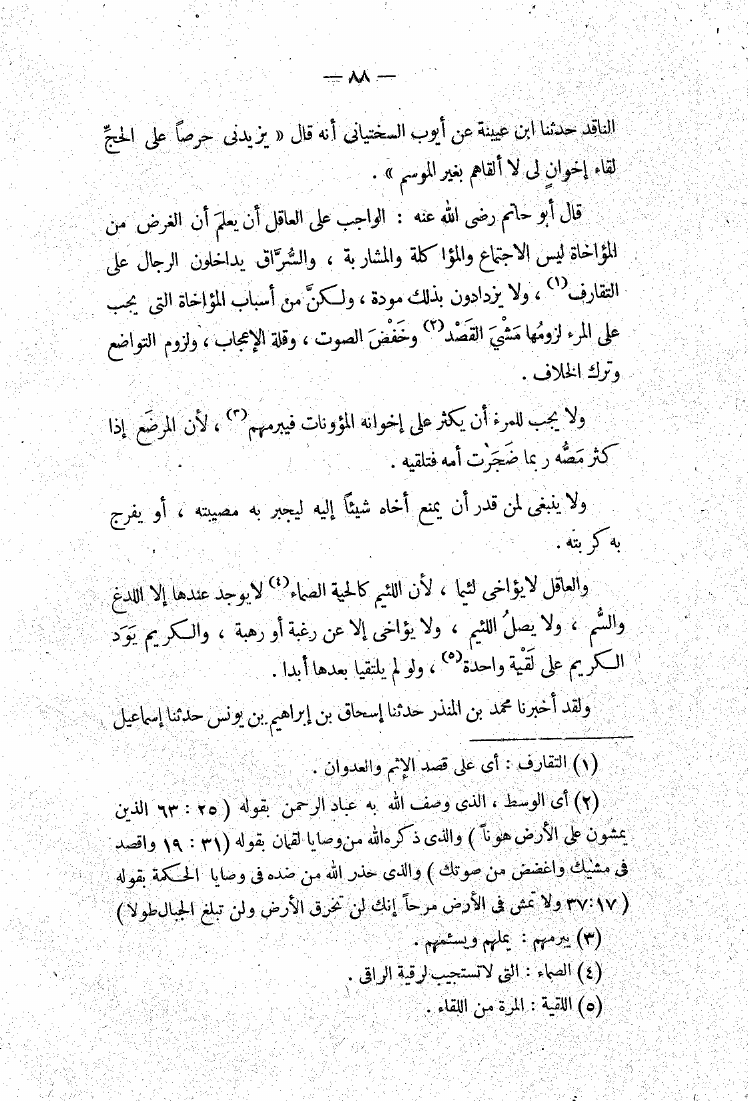 — ٨٨ —
الناقد حدثنا ابن عيينة عن أيوب السختيانى أنه قال « يزيدنى حرصاً على الحجِّ
لقاء إخوانٍ لى لا ألقاهم بغير الموسم » .
قال أبو حاتم رضى الله عنه : الواجب على العاقل أن يعلمَ أن الغرض من
المؤاخاة ليس الاجتماع والمؤاكلة والمشاربة ، والسُّرَّاق يداخلون الرجال على
التقارف(١) ، ولا يزدادون بذلك مودة ، ولكنَّ من أسباب المؤاخاة التى يجب
على المرء لزومُها مَشْىَ القَصْد(٢) وخَفْضَ الصوت ، وقلة الإعجاب ، ولزوم التواضع
وترك الخلاف .
ولا يجب للمرء أن يكثر على إخوانه المؤونات فيبرمهم(٣) ، لأن المرضَع إذا
كثر مَصُّه ربما ضَجَرَت أمه فتلقيه .
ولا ينبغى لمن قدر أن يمنع أخاه شيئاً إليه ليجبر به مصيبته ، أو يفرج
به كربته .
والعاقل لا يؤاخى لئيما ، لأن اللئيم كالحية الصماء(٤) لا يوجد عندها إلا اللدغ
والسُّم ، ولا يصلُ اللئيم ، ولا يؤاخى إلا عن رغبة أو رهبة ، والكريم يَوَد
الكريم على لَقْية واحدة(٥) ، ولو لم يلتقيا بعدها أبدا .
ولقد أخبرنا محمد بن المنذر حدثنا إسحاق بن إبراهيم بن يونس حدثنا إسماعيل
(١) التقارف : أى على قصد الإثم والعدوان .
(٢) أى الوسط ، الذى وصف الله به عباد الرحمن بقوله ( ٢٥ : ٦٣ الذين
يمشون على الأرض هوناً ) والذى ذكره الله من وصايا لقمان بقوله ( ٣١ : ١٩ واقصد
فى مشيك واغضض من صوتك ) والذى حذر الله من ضده فى وصايا الحكمة بقوله
( ١٧:٣٧ ولا تمش فى الأرض مرحاً إنك لن تخرق الأرض ولن تبلغ الجبال طولا )
(٣) يبرمهم : يملهم ويسئمهم .
(٤) الصماء : التى لا تستجيب لرقية الراقى .
(٥) اللقية : المرة من اللقاء .